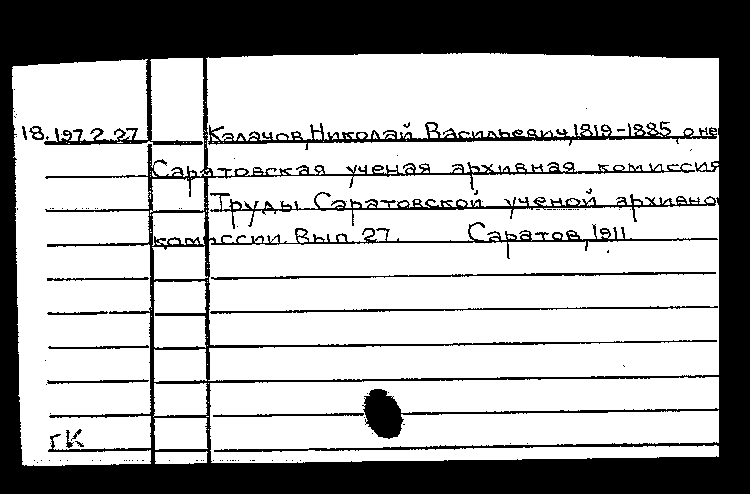 18.197.2.27 Калачов, Николай Васильевич, 1819-1885, о не
Саратовская ученая архивная комиссия
Труды Саратовской ученой архивно
комиссии. Вып. 27. Саратов, 1911.
гК